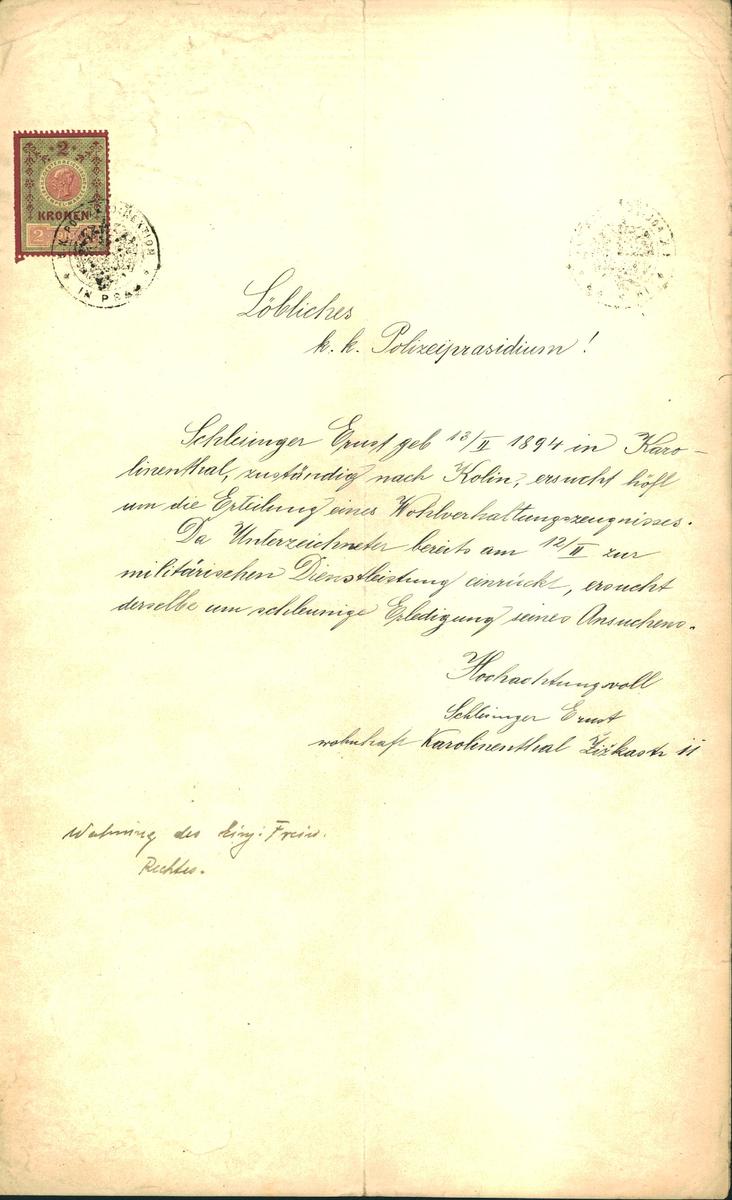 2
KRONEN
2
IN PRAG
Löbliches
k. k. Polizeiprasidium!
Schlesinger Ernst geb 13/II 1894 in Karo-
linenthal, zuständig nach Kolin, ersucht höfl
um die Erteilung eines Wohlverhaltungszeugnisses.
Da Unterzeichneter bereits am 12/II zur
militärischen Dienstleistung einrückt, ersucht
derselbe um schleunige Erledigung seines Ansuchens.
Hochachtungsvoll
Schlesinger Ernst
wohnhaft Karolinenthal Žižkastr 11
Wahrung des Einj: Freiw.
Rechtes.